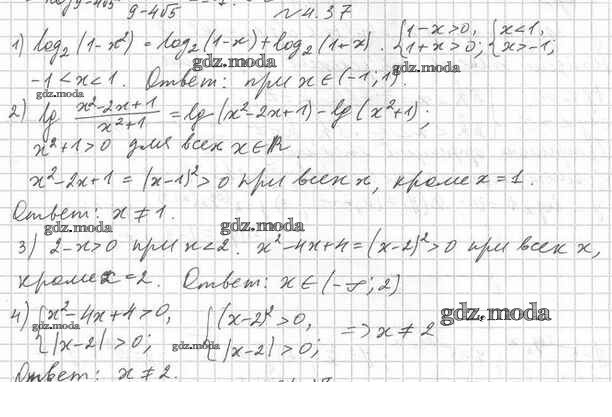 9-4√5
№4.37
1) log₂(1-x²) = log₂(1-x)+log₂(1+x). {1-x>0, {x<1,
1+x>0; x>-1;
gdz.moda
-1<x<1. Ответ: при x∈(-1;1).
gdz.moda
2) lg (x²-2x+1)/(x²+1) = lg(x²-2x+1)-lg(x²+1);
gdz.moda
x²+1>0 для всех x∈R.
x²-2x+1=(x-1)²>0 при всех x, кроме x=1.
Ответ: x≠1.
gdz.moda
gdz.moda
3) 2-x>0 при x<2. x²-4x+4=(x-2)²>0 при всех x,
кроме x=2. Ответ: x∈(-∞;2)
4) {x²-4x+4>0, {(x-2)²>0, => x≠2
|x-2|>0; |x-2|>0;
gdz.moda
gdz.moda
gdz.moda
Ответ: x≠2.